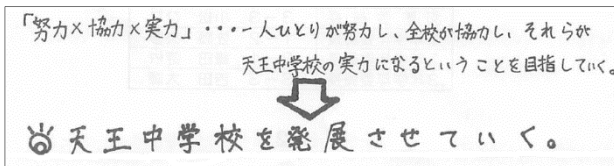 「努力×協力×実力」・・・一人ひとりが努力し、全校が協力し、それらが
天王中学校の実力になるということを目指していく。
天王中学校を発展させていく。